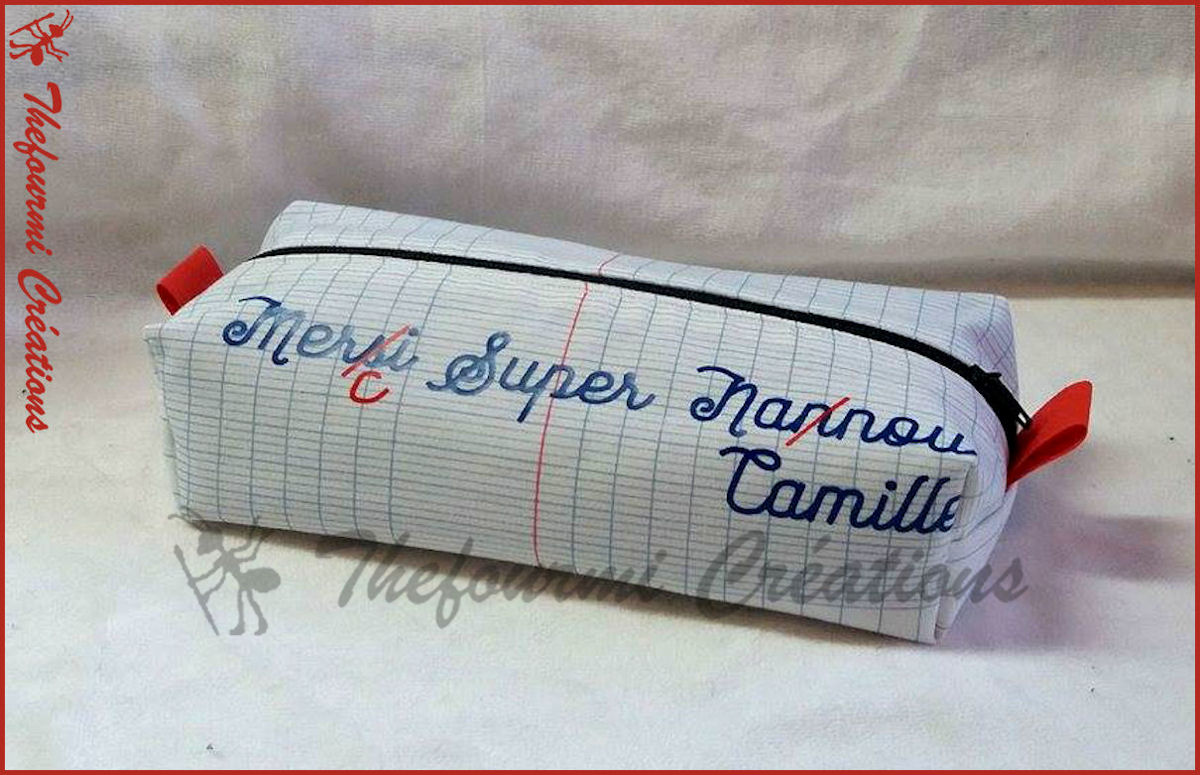 Thefourmi Créations
Mersi Super Nannou
c
Camille
Thefourmi Créations